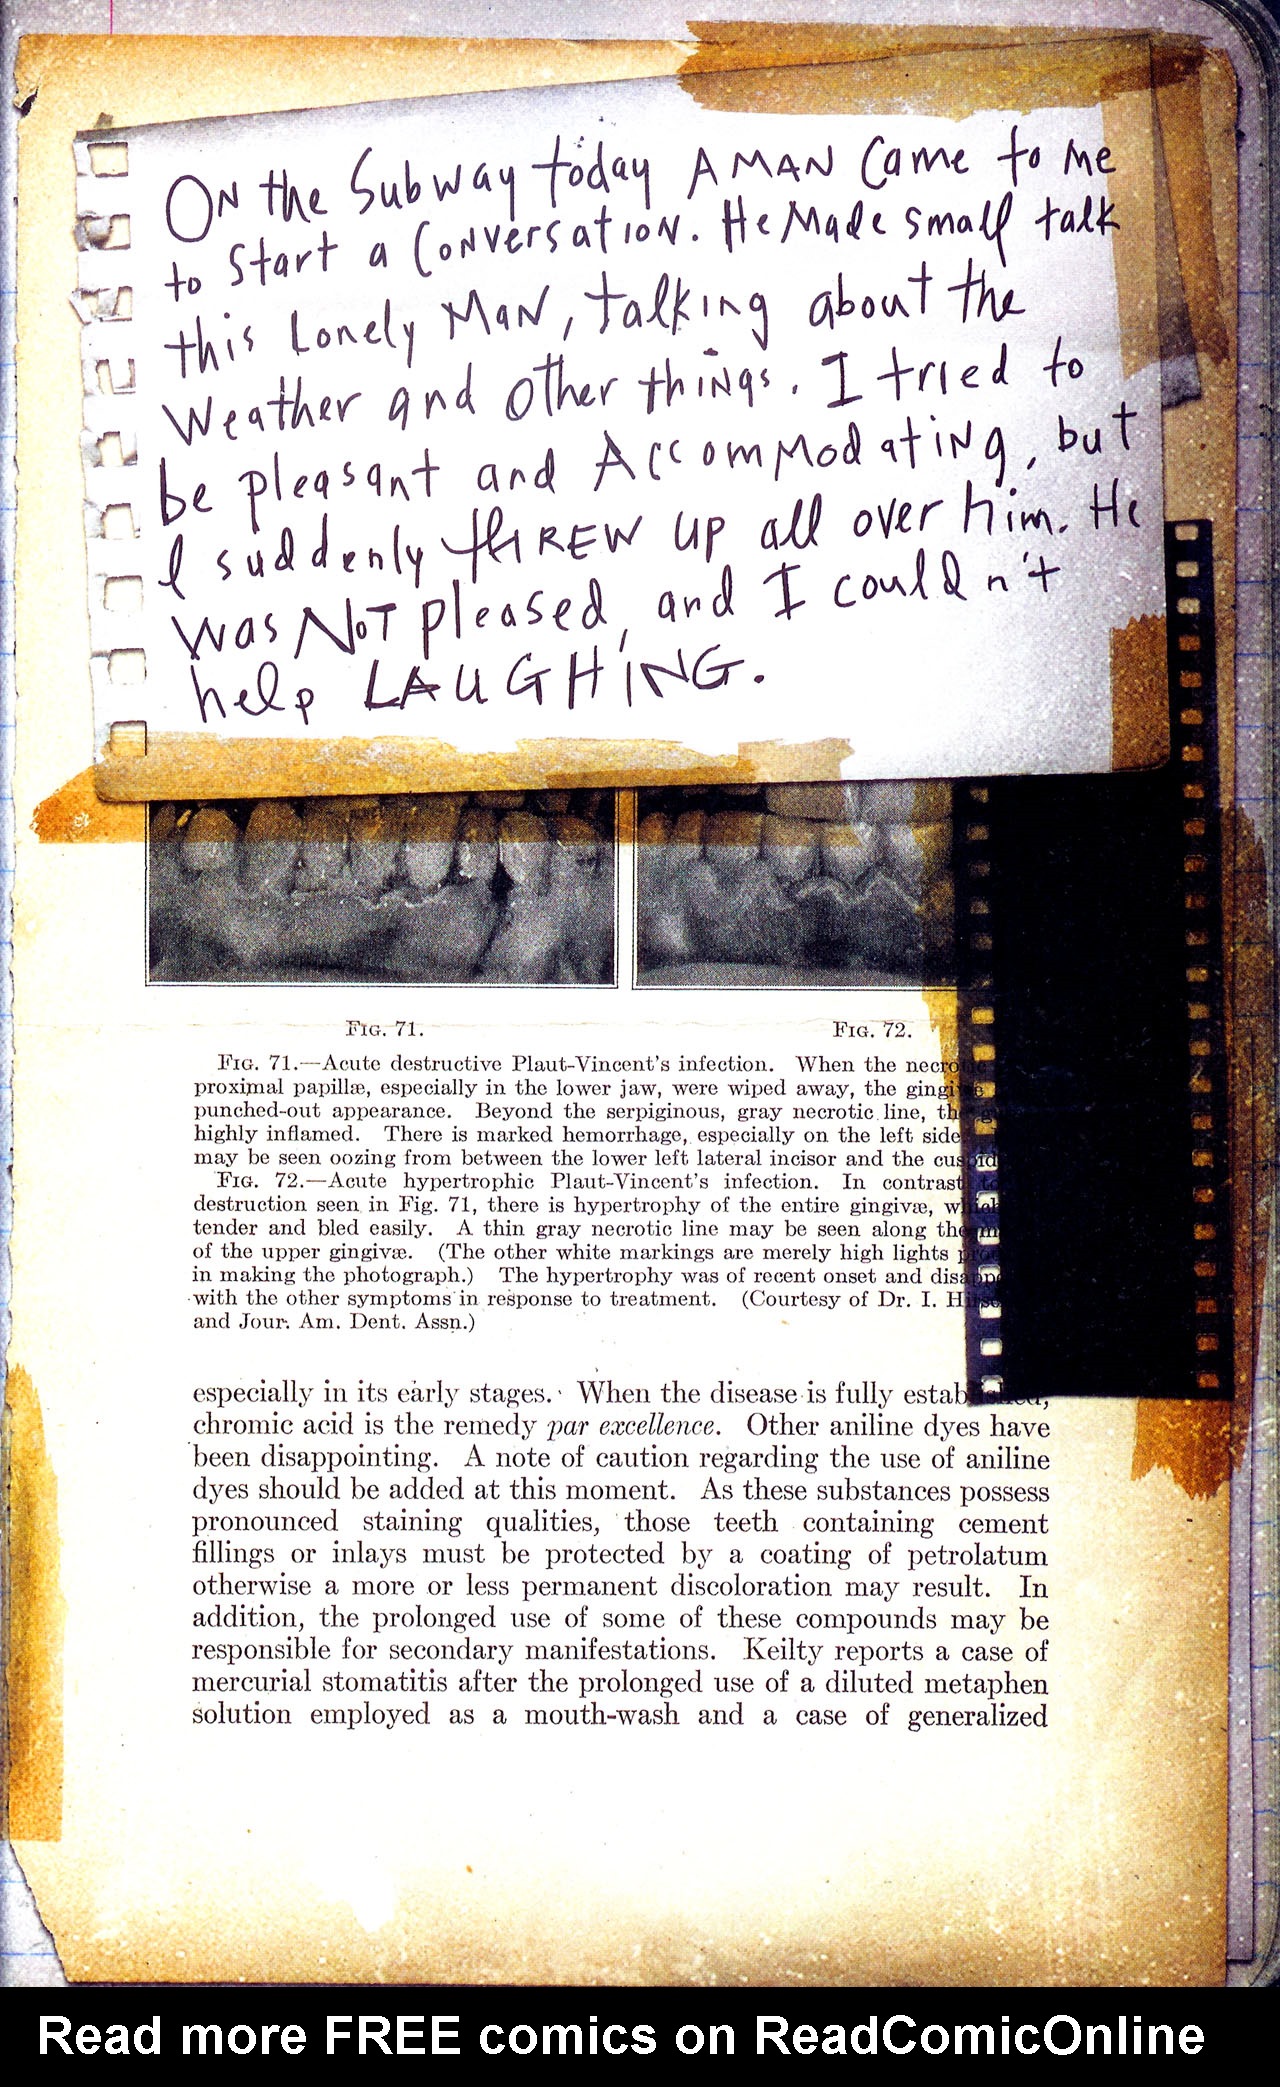 ON the Subway today A MAN Came to me
to Start a Conversation. He Made small talk
this Lonely MaN, talking about the
Weather and other things. I tried to
be pleasant and AccomModating, but
I suddenly thREW up all over him. He
was NOT pleased, and I couldn't
help LAUGHING.
FIG. 71.
FIG. 72.
FIG. 71.—Acute destructive Plaut-Vincent's infection. When the necrotic
proximal papillæ, especially in the lower jaw, were wiped away, the gingivæ
punched-out appearance. Beyond the serpiginous, gray necrotic line, the
highly inflamed. There is marked hemorrhage, especially on the left side
may be seen oozing from between the lower left lateral incisor and the cuspid
FIG. 72.—Acute hypertrophic Plaut-Vincent's infection. In contrast to
destruction seen in Fig. 71, there is hypertrophy of the entire gingivæ, which
tender and bled easily. A thin gray necrotic line may be seen along the
of the upper gingivæ. (The other white markings are merely high lights
in making the photograph.) The hypertrophy was of recent onset and
with the other symptoms in response to treatment. (Courtesy of Dr. I.
and Jour. Am. Dent. Assn.)
especially in its early stages. When the disease is fully established,
chromic acid is the remedy par excellence. Other aniline dyes have
been disappointing. A note of caution regarding the use of aniline
dyes should be added at this moment. As these substances possess
pronounced staining qualities, those teeth containing cement
fillings or inlays must be protected by a coating of petrolatum
otherwise a more or less permanent discoloration may result. In
addition, the prolonged use of some of these compounds may be
responsible for secondary manifestations. Keilty reports a case of
mercurial stomatitis after the prolonged use of a diluted metaphen
solution employed as a mouth-wash and a case of generalized
Read more FREE comics on ReadComicOnline